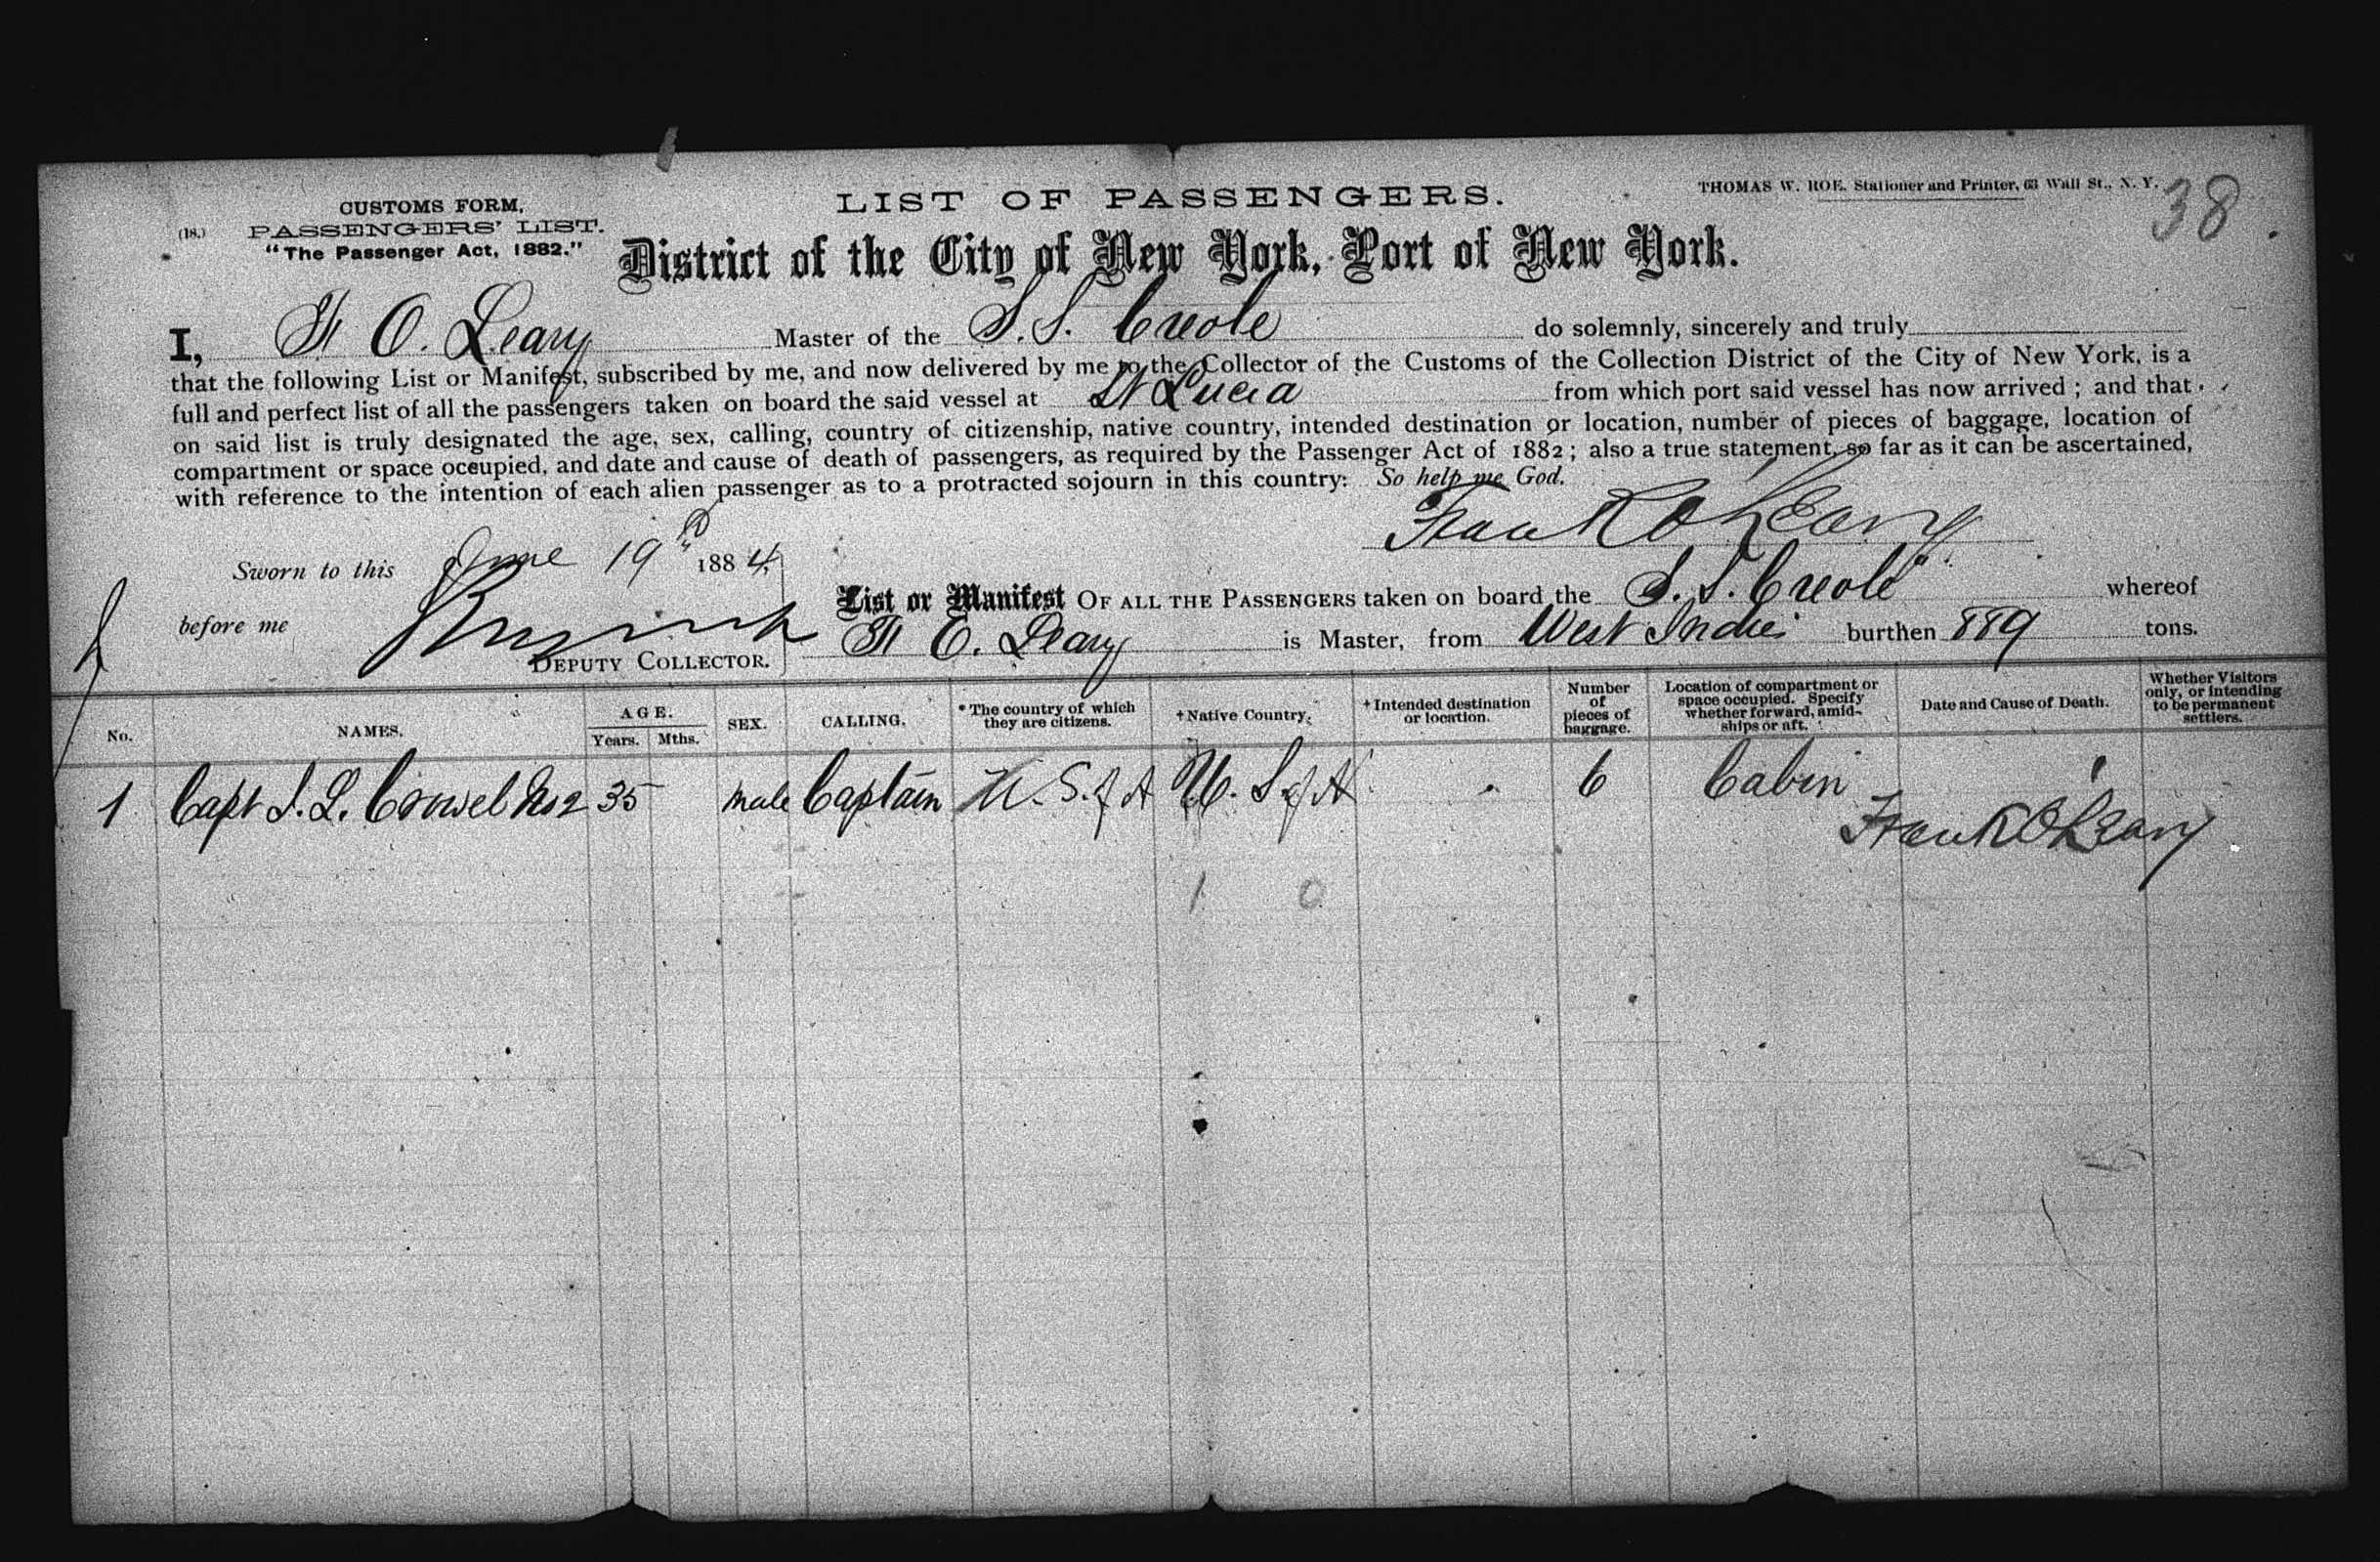 CUSTOMS FORM,
(18.) PASSENGERS' LIST.
"The Passenger Act, 1882."
LIST OF PASSENGERS.
THOMAS W. ROE, Stationer and Printer, 63 Wall St., N. Y.
38
District of the City of New York, Port of New York.
I, F O. Leary Master of the S.S. Creole do solemnly, sincerely and truly
that the following List or Manifest, subscribed by me, and now delivered by me to the Collector of the Customs of the Collection District of the City of New York, is a
full and perfect list of all the passengers taken on board the said vessel at St Lucia from which port said vessel has now arrived ; and that
on said list is truly designated the age, sex, calling, country of citizenship, native country, intended destination or location, number of pieces of baggage, location of
compartment or space occupied, and date and cause of death of passengers, as required by the Passenger Act of 1882 ; also a true statement, so far as it can be ascertained,
with reference to the intention of each alien passenger as to a protracted sojourn in this country: So help me God.
Frank O Leary
Sworn to this June 19 1884
before me
DEPUTY COLLECTOR.
List or Manifest OF ALL THE PASSENGERS taken on board the S.S. Creole whereof
F O. Leary is Master, from West Indies burthen 889 tons.
No. NAMES. AGE. Years. Mths. SEX. CALLING. * The country of which they are citizens. + Native Country. + Intended destination or location. Number of pieces of baggage. Location of compartment or space occupied. Specify whether forward, amidships or aft. Date and Cause of Death. Whether Visitors only, or intending to be permanent settlers.
1 Capt J. L. Crowel 35 male Captain U. S. of A U. S. of A 6 Cabin
Frank O Leary
1 0